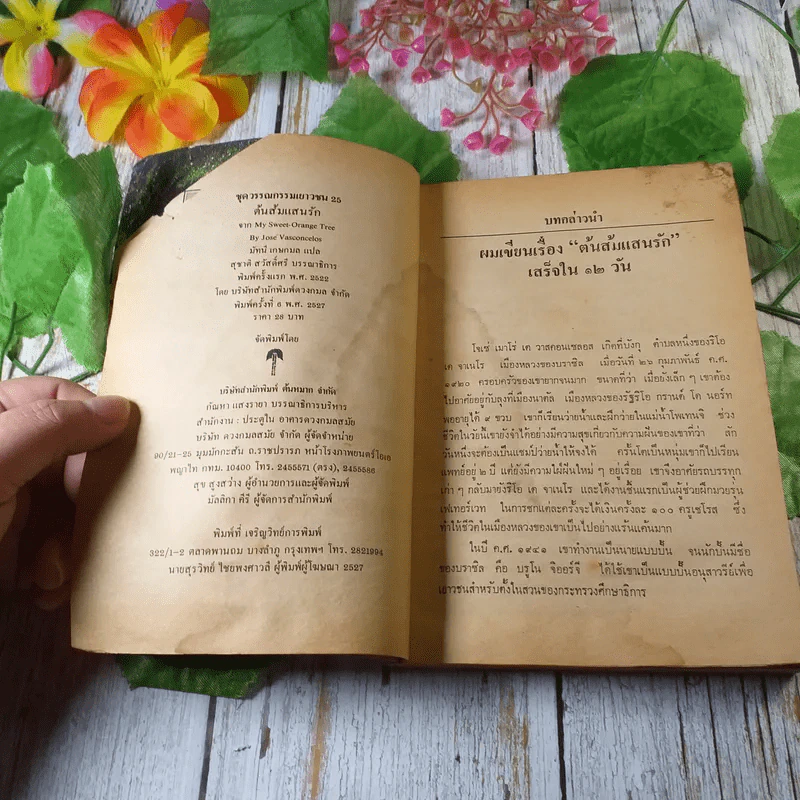 ชุดวรรณกรรมเยาวชน 25
ต้นส้มแสนรัก
จาก My Sweet-Orange Tree
By José Vasconcelos
มัทนี เกษกมล แปล
สุชาติ สวัสดิ์ศรี บรรณาธิการ
พิมพ์ครั้งแรก พ.ศ. 2522
โดย บริษัทสำนักพิมพ์ดวงกมล จำกัด
พิมพ์ครั้งที่ 6 พ.ศ. 2527
ราคา 28 บาท
จัดพิมพ์โดย
บริษัทสำนักพิมพ์ ต้นหมาก จำกัด
กัณหา แสงรายา บรรณาธิการบริหาร
สำนักงาน : ประตูใน อาคารดวงกมลสมัย
บริษัท ดวงกมลสมัย จำกัด ผู้จัดจำหน่าย
90/21-25 มุมมักกะสัน ถ.ราชปรารภ หน้าโรงภาพยนตร์โอเอ
พญาไท กทม. 10400 โทร. 2455571 (ตรง), 2455586
สุข สูงสว่าง ผู้อำนวยการและผู้จัดพิมพ์
มัลลิกา คีรี ผู้จัดการสำนักพิมพ์
พิมพ์ที่ เจริญวิทย์การพิมพ์
322/1-2 ตลาดพานถม บางลำภู กรุงเทพฯ โทร. 2821994
นายสุรวิทย์ ไชยพงศาวลี ผู้พิมพ์ผู้โฆษณา 2527
บทกล่าวนำ
ผมเขียนเรื่อง “ต้นส้มแสนรัก”
เสร็จใน ๑๒ วัน
โจเซ่ เมาโร่ เด วาสคอนเซลอส เกิดที่บังกู ตำบลหนึ่งของริโอ
เด จาเนโร เมืองหลวงของบราซิล เมื่อวันที่ ๒๖ กุมภาพันธ์ ค.ศ.
๑๙๒๐ ครอบครัวของเขายากจนมาก ขนาดที่ว่า เมื่อยังเล็ก ๆ เขาต้อง
ไปอาศัยอยู่กับลุงที่เมืองนาตัล เมืองหลวงของรัฐริโอ กรานด์ โด นอร์ท
พออายุได้ ๙ ขวบ เขาก็เรียนว่ายน้ำและฝึกว่ายในแม่น้ำโพเทนจิ ช่วง
ชีวิตในวัยนี้เขายังจำได้อย่างมีความสุขเกี่ยวกับความฝันของเขาที่ว่า สัก
วันหนึ่งจะต้องเป็นแชมป์ว่ายน้ำให้จงได้ ครั้นโตเป็นหนุ่มเขาก็ไปเรียน
แพทย์อยู่ ๒ ปี แต่ยังมีความใฝ่ฝันใหม่ ๆ อยู่เรื่อย เขาจึงอาศัยรถบรรทุก
เก่า ๆ กลับมายังริโอ เด จาเนโร และได้งานชิ้นแรกเป็นผู้ช่วยฝึกมวยรุ่น
เฟเทอร์เวท ในการชกแต่ละครั้งจะได้เงินครั้งละ ๑๐๐ ครูเซโรส ซึ่ง
ทำให้ชีวิตในเมืองหลวงของเขาเป็นไปอย่างแร้นแค้นมาก
ในปี ค.ศ. ๑๙๔๑ เขาทำงานเป็นนายแบบปั้น จนนักปั้นมีชื่อ
ของบราซิล คือ บรูโน จิออร์จี ได้ใช้เขาเป็นแบบปั้นอนุสาวรีย์เพื่อ
เยาวชนสำหรับตั้งในสวนของกระทรวงศึกษาธิการ